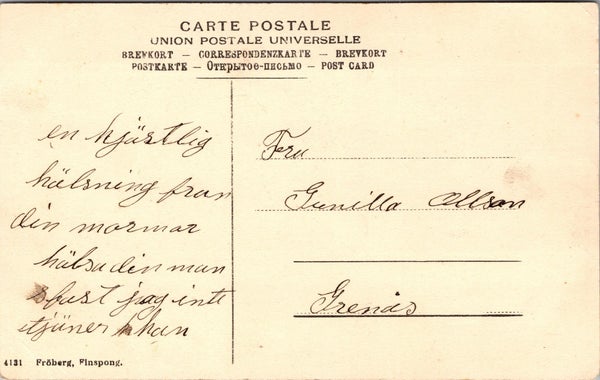 CARTE POSTALE
UNION POSTALE UNIVERSELLE
BREVKORT — CORRESPONDENZKARTE — BREVKORT
POSTKARTE — Открытое-письмо — POST CARD
en hjästlig
hälsning fran
din mormor
hälsa din man
fast jag inte
han
Fru
Gunilla Ollson
Grenäs
4131 Fröberg, Finspong.